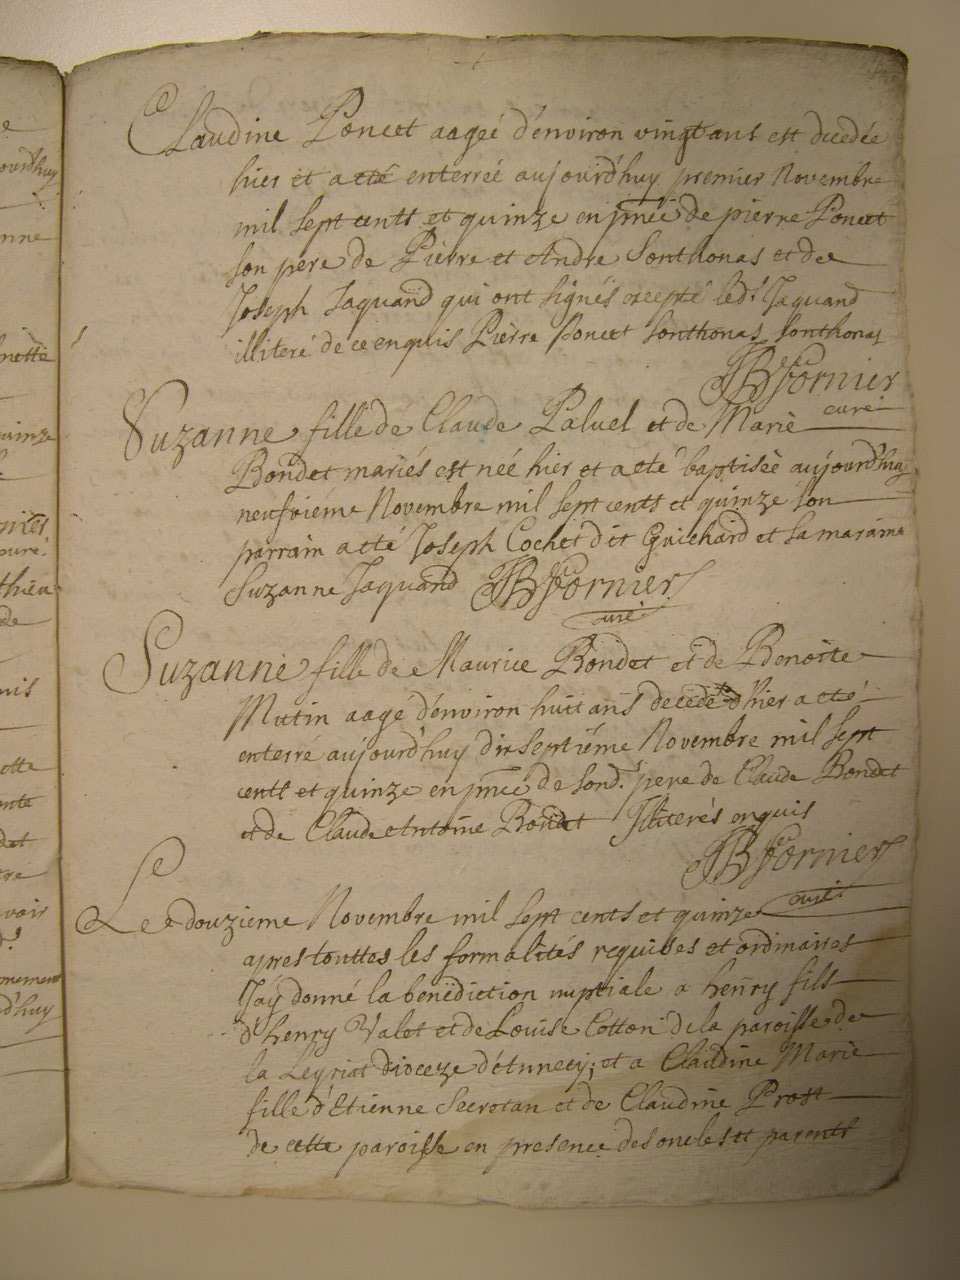 Claudine Poncet aageé d'environ vingt ans est decedée
hier et a eté enterreé aujourd'huy premier Novembre
mil sept cents et quinze en pnce de pierre Poncet
son pere de Pierre et Andre Sonthonas et de
Joseph Jaquand qui ont signés excepté led.t Jaquand
illiteré de ce enquis Pierre Poncet Sonthonas Sonthonas
JB Fornier
curé
Suzanne fille de Claude Paluel et de Marie
Bondet mariés est née hier et a eté baptisée aujourd'huy
neufvieme Novembre mil sept cents et quinze son
parrain a eté Joseph Cochet dit Guichard et sa maraine
Suzanne Jaquand JB Fornier
curé
Suzanne fille de Maurice Bondet et de Benoite
Mutin aagé d'environ huit ans decedé d'hier a eté
enterré aujourd'huy dix septieme Novembre mil sept
cents et quinze en pnce de sond.t pere de Claude Bondet
et de Claude Antoine Bondet Illiterés enquis
JB Fornier
curé
Le douzieme Novembre mil sept cents et quinze
apres touttes les formalités requises et ordinaires
J'ay donné la benediction nuptiale a henry fils
d'henry Valet et de Louise Cotton de la paroisse de
la Leyriat Dioceze d'Annecy; et a Claudine Marie
fille d'Etienne Secretan et de Claudine Prost
de cette paroisse en presence des oncles et parents